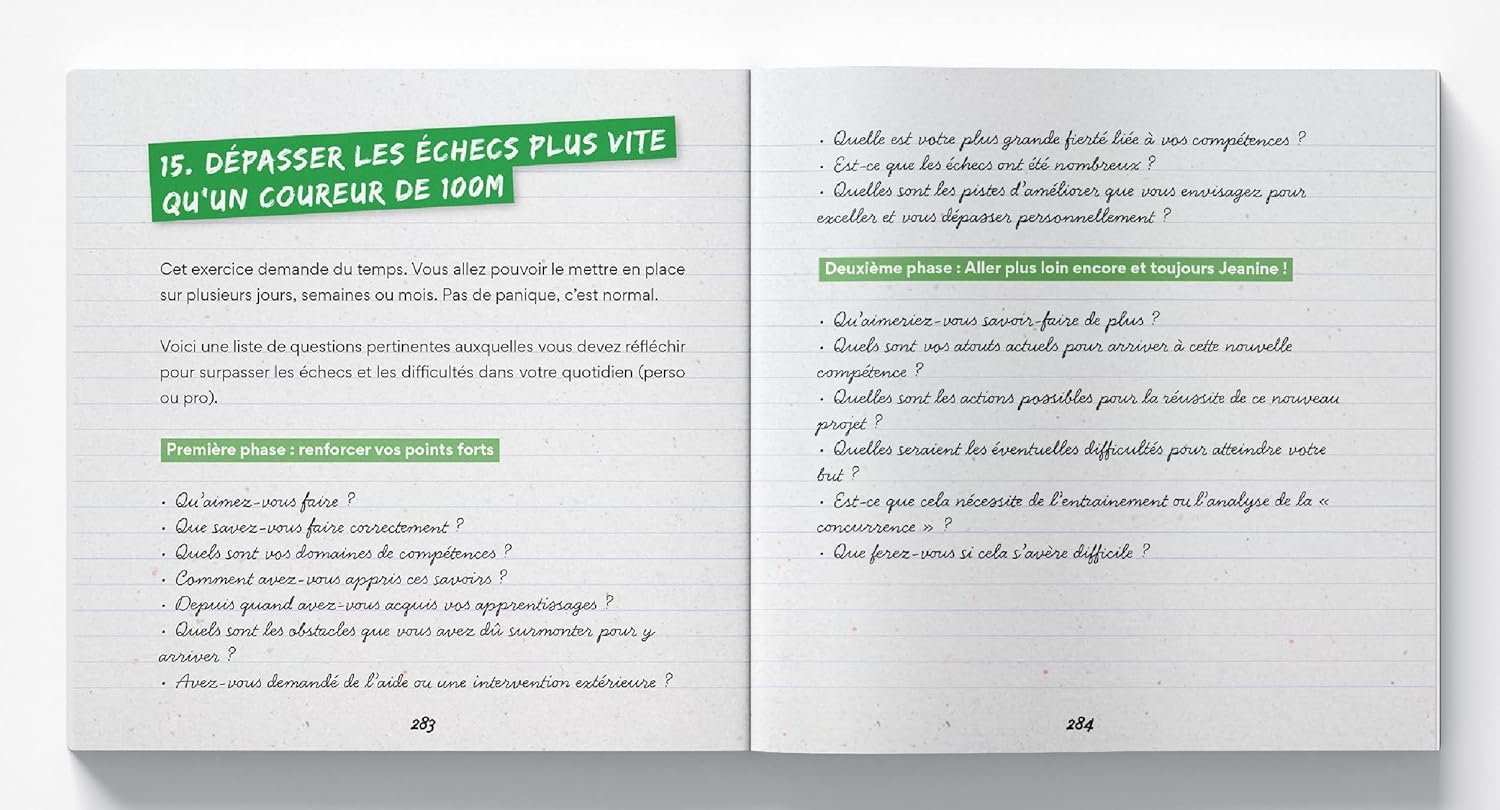 15. DÉPASSER LES ÉCHECS PLUS VITE
QU'UN COUREUR DE 100M
Cet exercice demande du temps. Vous allez pouvoir le mettre en place
sur plusieurs jours, semaines ou mois. Pas de panique, c'est normal.
Voici une liste de questions pertinentes auxquelles vous devez réfléchir
pour surpasser les échecs et les difficultés dans votre quotidien (perso
ou pro).
Première phase : renforcer vos points forts
• Qu'aimez-vous faire ?
• Que savez-vous faire correctement ?
• Quels sont vos domaines de compétences ?
• Comment avez-vous appris ces savoirs ?
• Depuis quand avez-vous acquis vos apprentissages ?
• Quels sont les obstacles que vous avez dû surmonter pour y
arriver ?
• Avez-vous demandé de l'aide ou une intervention extérieure ?
283
• Quelle est votre plus grande fierté liée à vos compétences ?
• Est-ce que les échecs ont été nombreux ?
• Quelles sont les pistes d'améliorer que vous envisagez pour
exceller et vous dépasser personnellement ?
Deuxième phase : Aller plus loin encore et toujours Jeanine !
• Qu'aimeriez-vous savoir-faire de plus ?
• Quels sont vos atouts actuels pour arriver à cette nouvelle
compétence ?
• Quelles sont les actions possibles pour la réussite de ce nouveau
projet ?
• Quelles seraient les éventuelles difficultés pour atteindre votre
but ?
• Est-ce que cela nécessite de l'entrainement ou l'analyse de la «
concurrence » ?
• Que ferez-vous si cela s'avère difficile ?
284